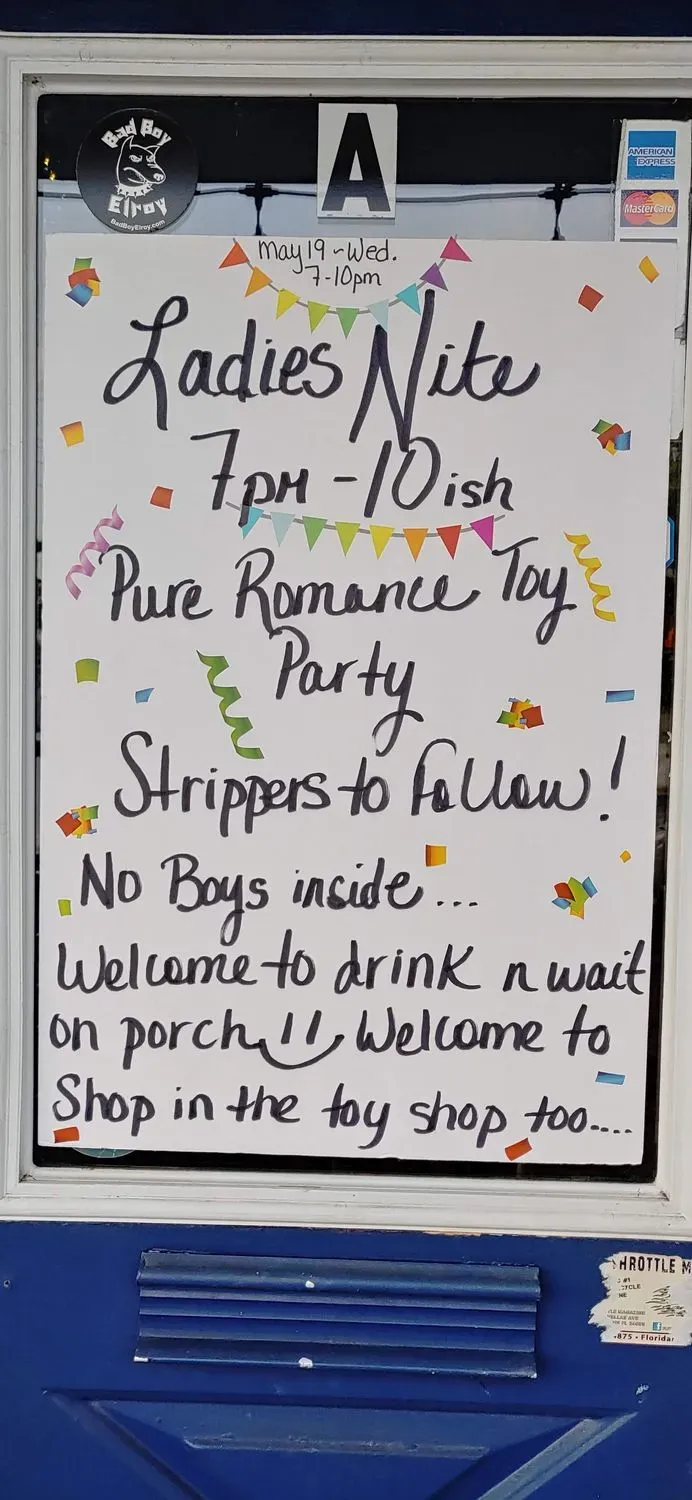 Bad Boy
Elroy
BadBoyElroy.com
A
AMERICAN
EXPRESS
MasterCard
May 19 ~ Wed.
7-10pm
Ladies Nite
7pm - 10ish
Pure Romance Toy
Party
Strippers to Follow!
No Boys inside...
Welcome to drink n wait
on porch Welcome to
Shop in the toy shop too....
HROTTLE M
#1
CYCLE
875 • Florida